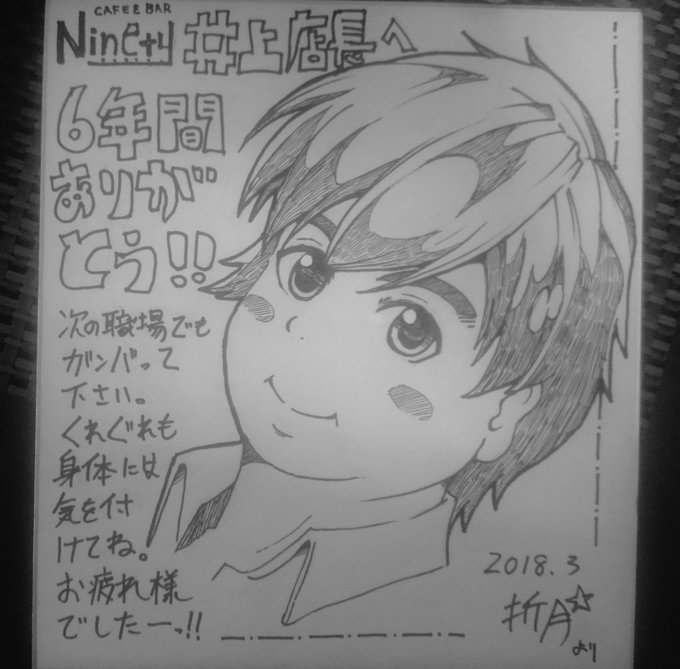 CAFE & BAR
Ninety 井上店長へ
6年間
ありが
とう!!
次の職場でも
ガンバって
下さい。
くれぐれも
身体には
気を付
けてね。
お疲れ様
でしたーっ!!
2018.3
折月☆
より